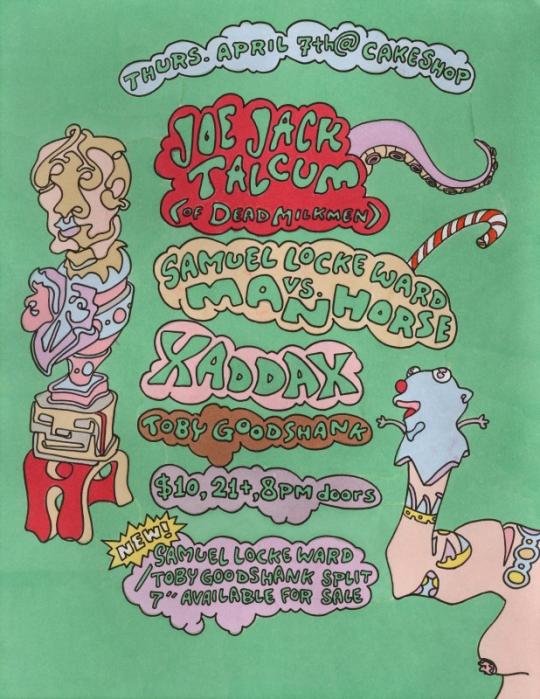 THURS. APRIL 7th @ CAKESHOP
JOE JACK
TALCUM
(OF DEAD MILKMEN)
SAMUEL LOCKE WARD
VS.
MAN HORSE
XADDAX
TOBY GOODSHANK
$10, 21+, 8PM doors
NEW!
SAMUEL LOCKE WARD
/TOBY GOODSHANK SPLIT
7" AVAILABLE FOR SALE